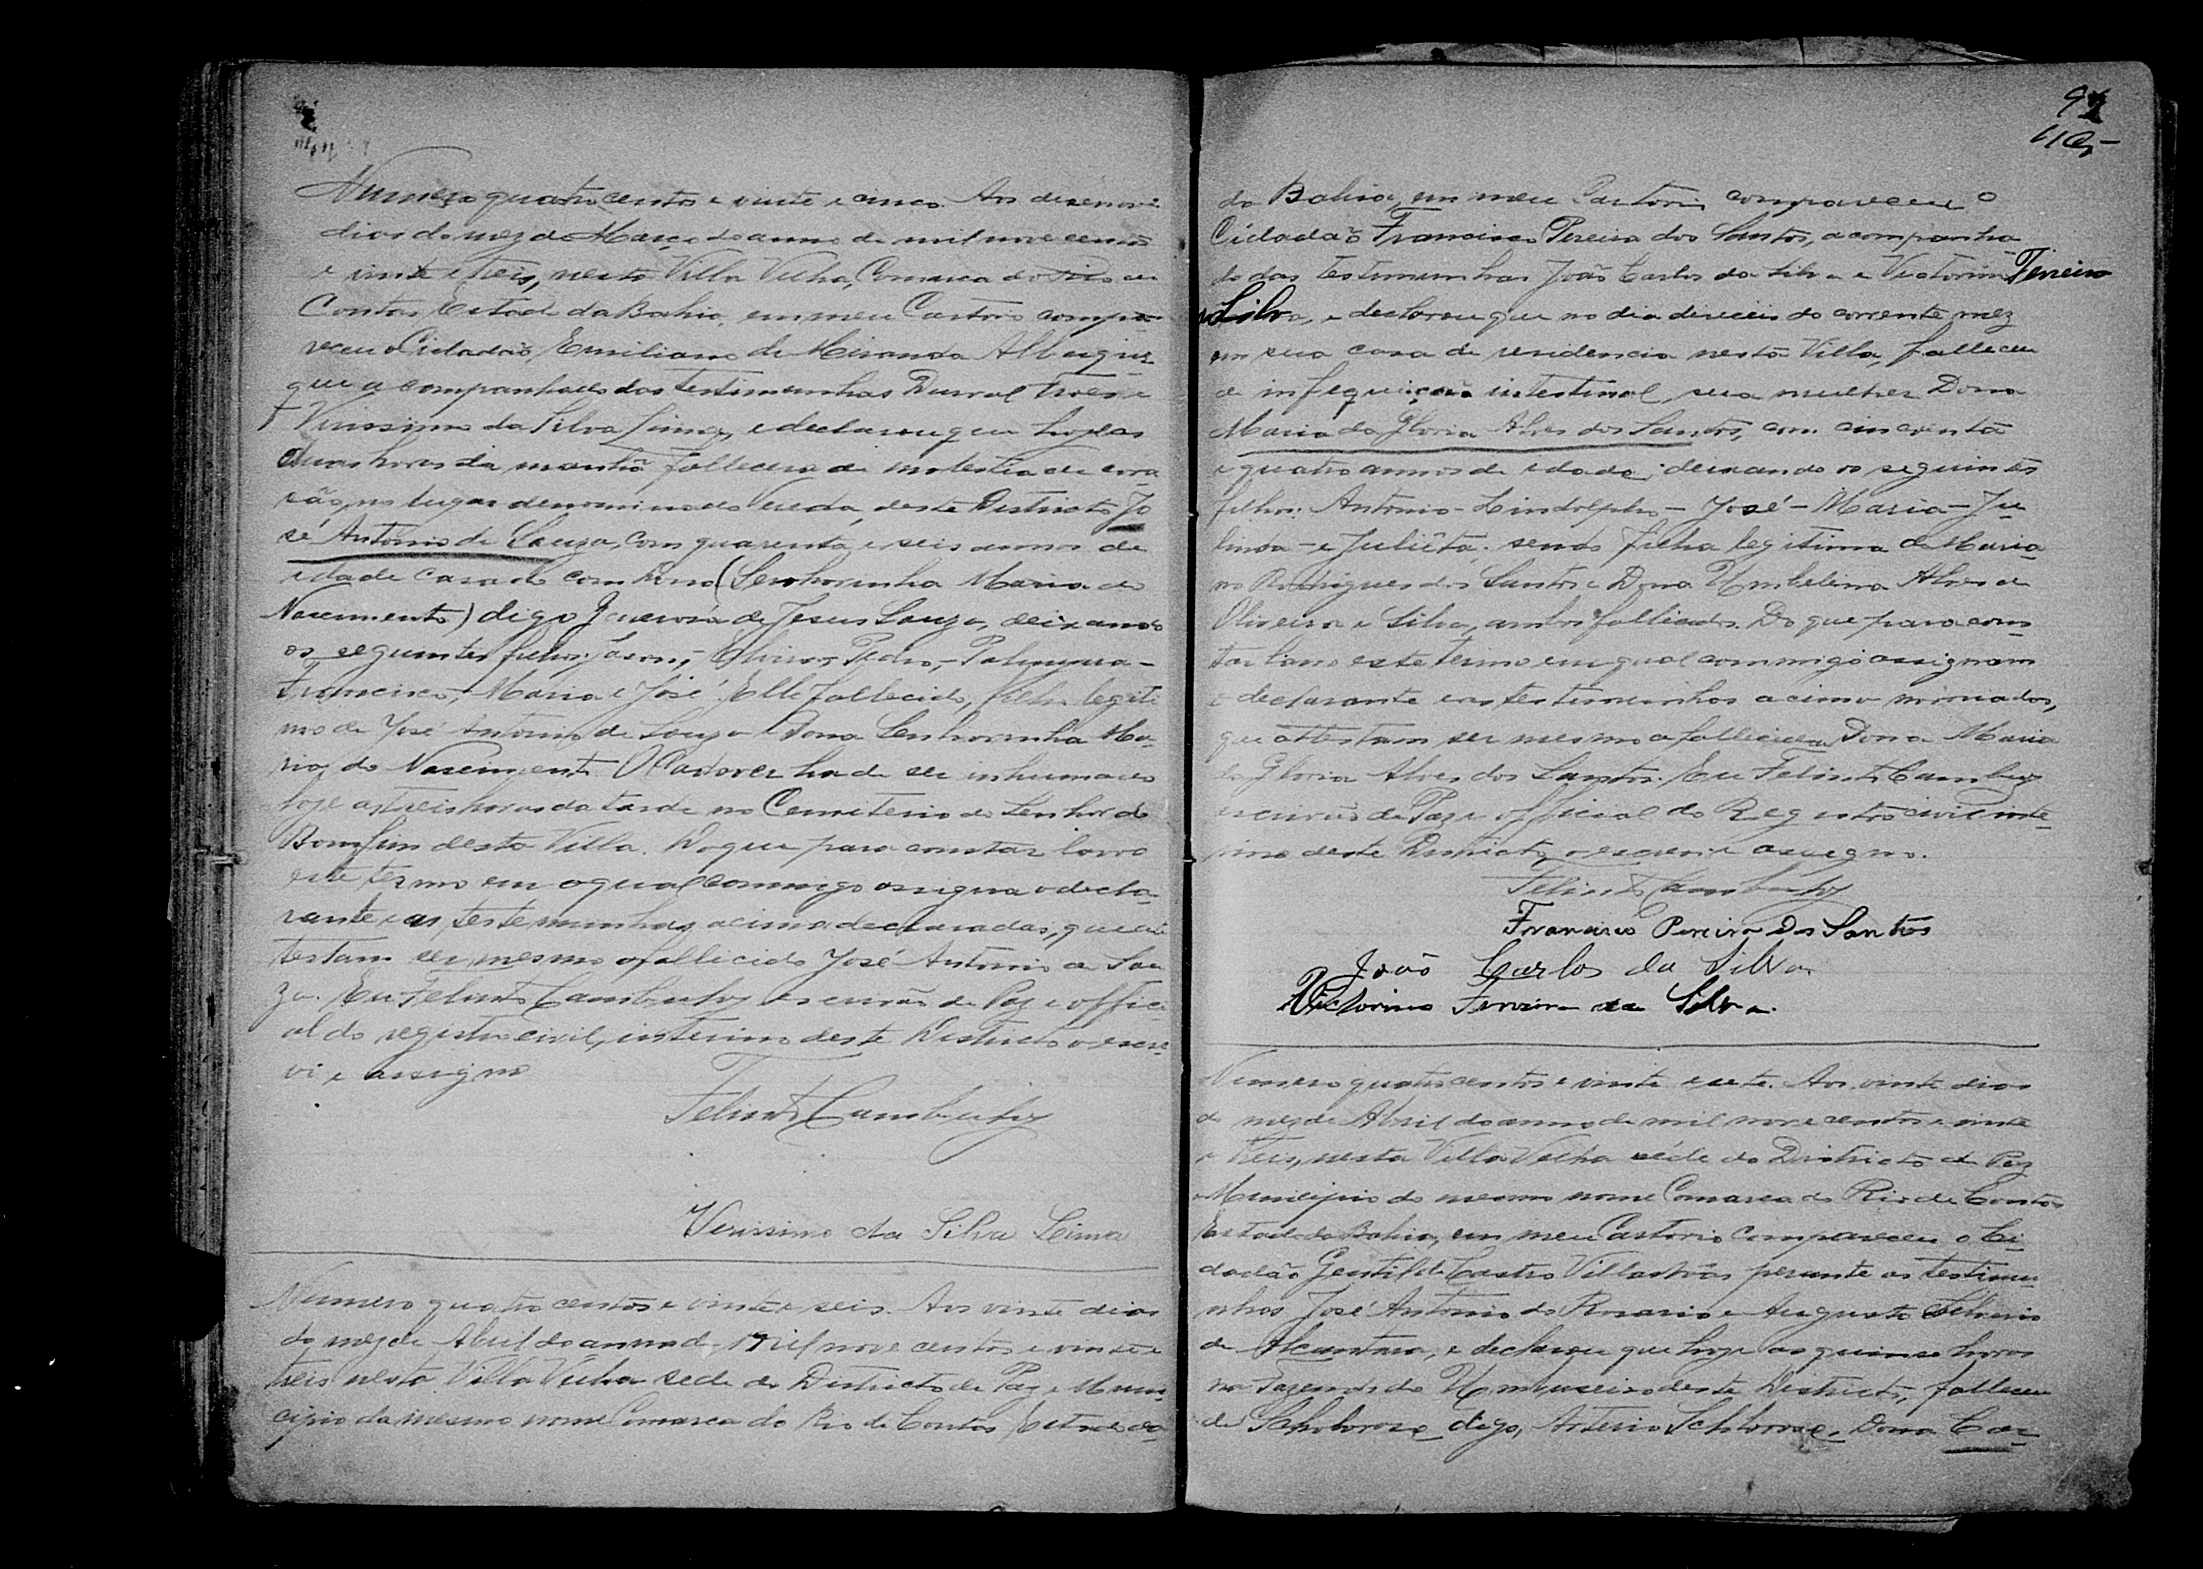 Numero quatro centos e vinte e cinco. Aos desenove
dias do mez de Março do anno de mil nove centos
e vinte e treis, nesta Villa Velha, Comarca do Rio de
Contas Estado da Bahia, em meu Cartorio compa-
receu o Cidadão, Emiliano de Miranda Albuquer-
que acompanhado das testimunhas Durval
Virissimo da Silva Lima, e declarou que hoje as
duas horas da manhã fallecera de molestia de cora
são, no lugar denominado Vereda, deste Districto, Jo
sé Antonio de Souza, com quarenta e seis annos de
idade casado com Dona (Senhorinha Maria do
Nascimento) digo Jesus Souza, deixando
os seguintes filhos: Jason, - Pedro, -
Francisco, - Maria e José. Elle fallecido, filho legiti
mo de José Antonio de Souza e Dona Senhorinha Ma-
ria do Nascimento. O Cadaver ha de ser inhumado
hoje as treis horas da tarde no Cemiterio do Senhor do
Bomfim desta Villa. Do que para constar lavro
este termo em o qual commigo assigna o decla-
rante e as testemunhas acima declaradas, que at
testam ser mesmo o fallecido José Antonio de Sou
za. Eu Felinto escrivão de Paz e offici
al do registro civil, interino deste Districto o escre-
vi e assigno
Felinto
Verissimo da Silva Leima
Numero quatro centos e vinte e seis. Aos vinte dias
do mez de Abril do anno de mil nove centos e vinte e
treis nesta Villa Velha sede do Districto de Paz e Muni-
cipio do mesmo nome Comarca do Rio de Contas Estado da
92
da Bahia, em meu Cartorio compareceu o
Cidadão Francisco Pereira dos Santos, acompanha
do das testimunhas João Carlos da Silva e Victorino Ferreira
da Silva, e declarou que no dia deseceis do corrente mez
em sua casa de residencia nesta Villa, falleceu
de intestinal sua mulher Dona
Maria da Gloria Alves dos Santos, com cincoenta
e quatro annos de idade; deixando os seguintes
filhos: Antonio - Lindolpho - José - Maria - Ju
linda - e Juliêta. sendo filha legitima de Maria-
no Rodrigues dos Santos e Dona Umbelina Alves de
Oliveira e Silva, ambos fallecidos. Do que para cons
tar lavro este termo em qual commigo assignam
o declarante e as testimunhas acima nomeadas,
que attestam ser mesmo a fallecida Dona Maria
da Gloria Alves dos Santos. Eu Felinto
escrivão de Paz e official do Registro civil inte-
rino deste Districto o escrevi e assigno.
Felinto
Francisco Pereira Dos Santos
João Carlos da Silva
Victorino Ferreira da Silva.
Numero quatro centos e vinte e sete. Aos vinte dias
do mez de Abril do anno de mil nove centos e vinte
e treis, nesta Villa Velha séde do Districto de Paz
e Municipio do mesmo nome Comarca do Rio de Contas
Estado da Bahia, em meu Cartorio compareceu o Ci
dadão Gentil de Castro Villasbôas perante as testimu-
nhas José Antonio do Rosario e Augusto Silverio
de Alcantara, e declarou que hoje as quinse horas
na Fazenda do Umbuseiro deste Districto, falleceu
de digo, Arterio Schlorose, Dona Car-